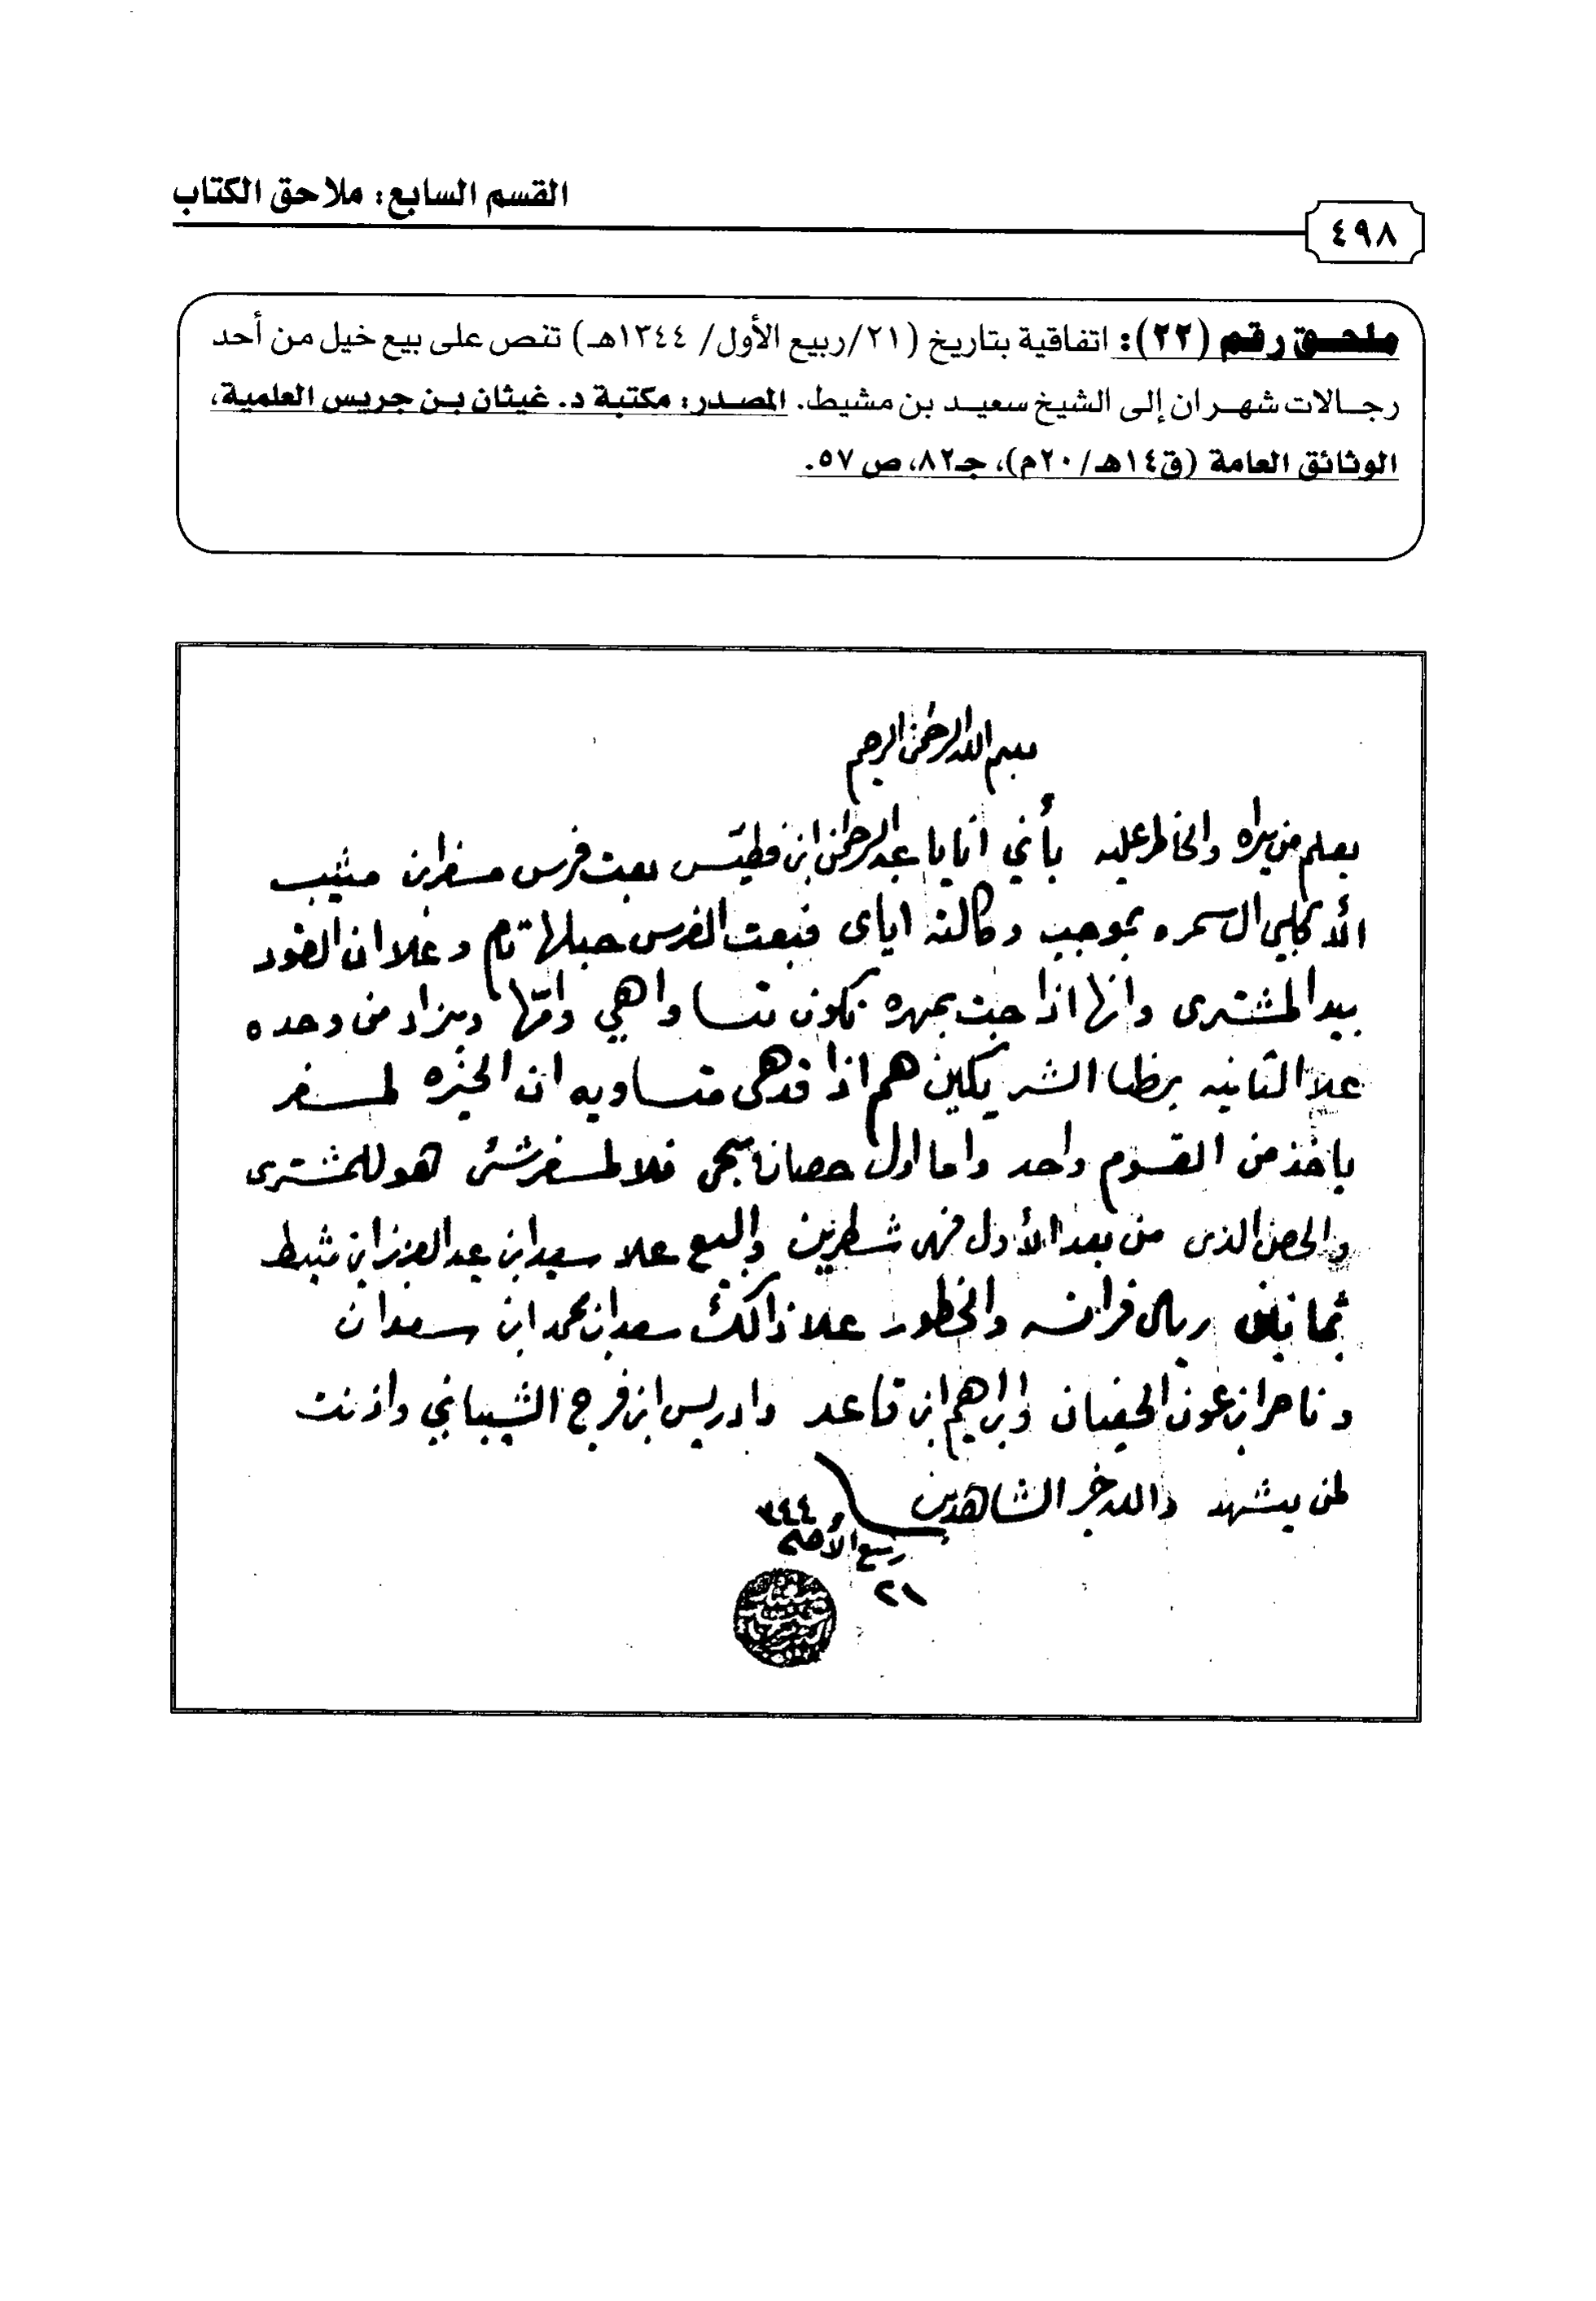 القسم السابع: ملاحق الكتاب
٤٩٨
ملحق رقم (٢٢): اتفاقية بتاريخ (٢١/ربيع الأول/ ١٣٤٤هـ) تنص على بيع خيل من أحد
رجالات شهران إلى الشيخ سعيد بن مشيط. المصدر: مكتبة د. غيثان بن جريس العلمية،
الوثائق العامة (ق١٤هـ/٢٠م)، جـ٨٢، ص ٥٧.
بسم الله الرحمن الرحيم
يعلم من يراه والخاطر عليه بأني انا يا عبد الرحمن ابن فطيس بعت فرس مسفر ابن
ال سمره بموجب وكالته اياي فبعت الفرس حبلها تام وعلا ان القود
بيد المشتري وانها اذا جبت بمهره تكون تتساوا هي وامها ويزاد من وحده
علا الثانيه برظا الشريكين هم اذا قد هي متساويه ان الخيره لمسفر
ياخذ من القسوم واحد واما اول حصان يجي فلا لمسفر شئ هو للمشتري
والحصن الذي من بعد الأول فهي شطرين والبيع علا سعيد ابن عبد العزيز ابن مشيط
ثمانين ريال فرانسه والحظور علا ذالك سعد ابن محمد ابن سعدان
و ابن عون الحفيان وابراهيم ابن قاعد وادريس ابن فرج الشيباني واذنت
لمن يشهد والله خير الشاهدين
٣٤٤
ربيع الأول
٢١